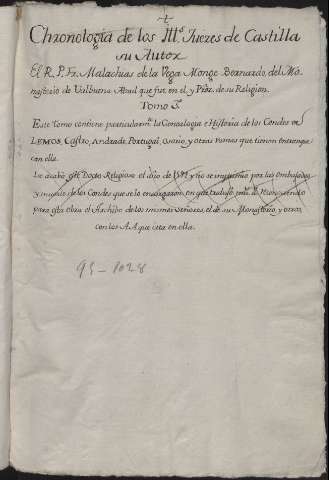 Chronologia de los Ill.ˢ Juezes de Castilla
su Autor
El R. P. Fr. Malachias de la Vega Monge Bernardo, del Mo-
nasterio de Valbuena Abad que fue en el, y de su Religion.
Tomo 3.
Este Tomo contiene particularm.te la Genealogia e Historia de los Condes de
LEMOS, Castro, Andrade, Portugal, Osorio y otras Ramas que tienen entronque
con ella.
Le acabó este Docto Religioso el año de y no se imprimio por las embajadas
y muerte de los Condes que se lo encargaron, en que trabajo reconociendo
para esta obra el Archibo de los mismos Señores, el de su Monasterio, y otros
con los A.A. que cita en ella.
95-1028